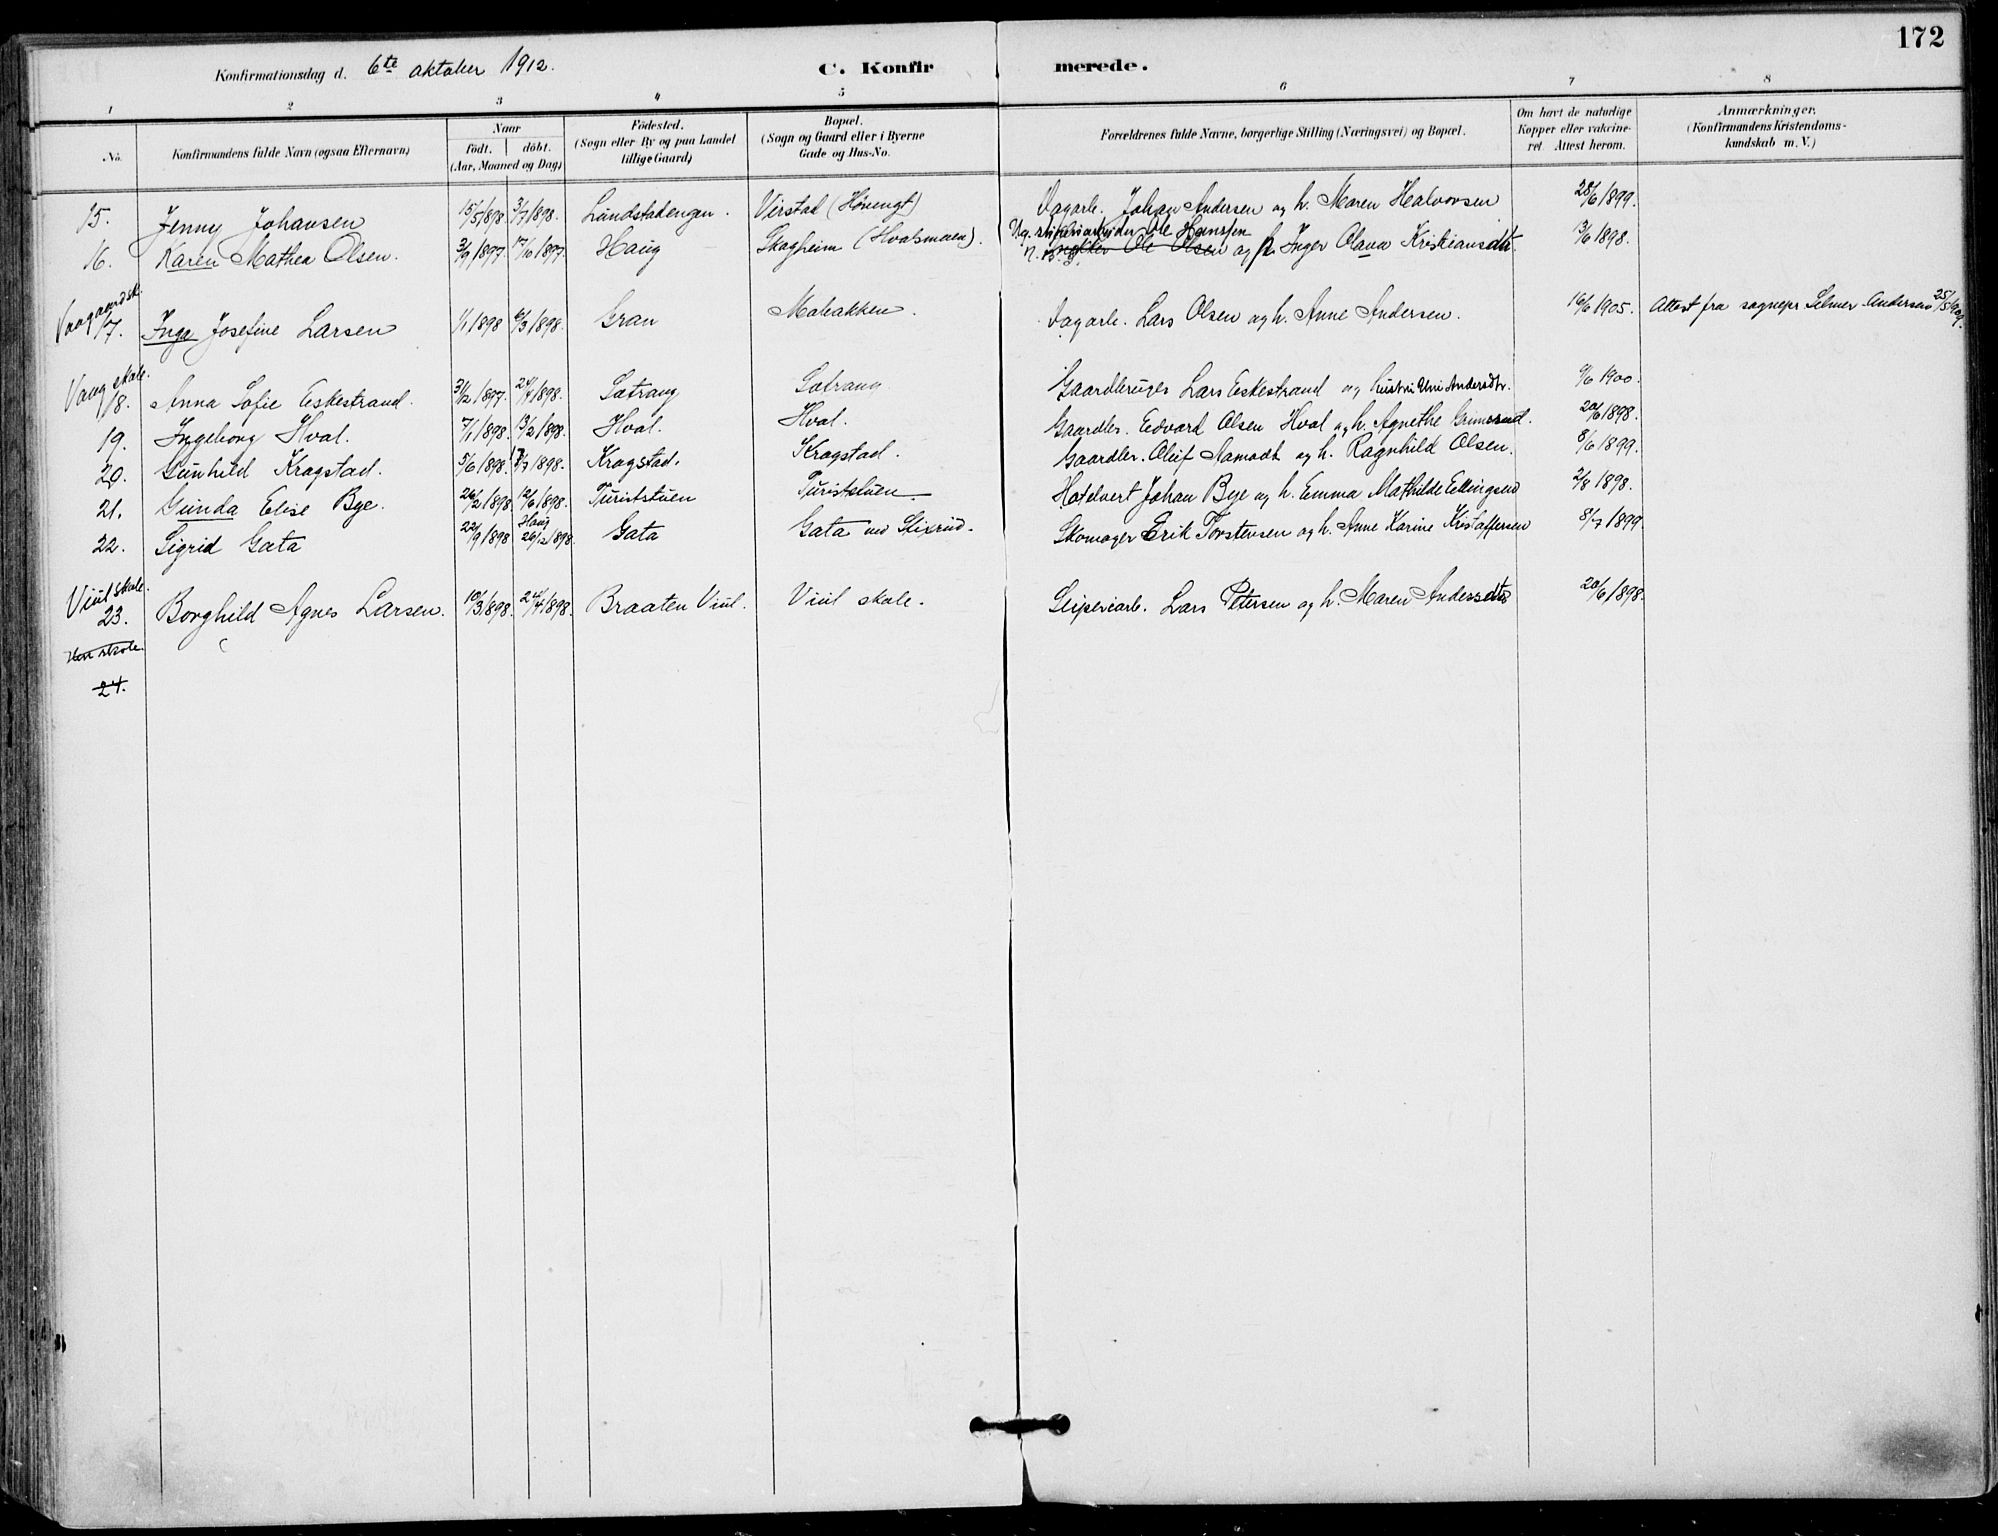 172
Konfirmationsdag d. 6te oktober 1912. C. Konfir merede.
1 2 3 4 5 6 7 8
No. Konfirmandens fulde Navn (ogsaa Efternavn) Naar födt. döbt. (Aar, Maaned og Dag) Födested. (Sogn eller By og paa Landet tillige Gaard) Bopæl. (Sogn og Gaard eller i Byerne Gade og Hus-No. Forældrenes fulde Navne, borgerlige Stilling (Næringsvei) og Bopæl. Om havt de naturlige Kopper eller vakcineret. Attest herom. Anmærkninger. (Konfirmandens Kristendomskundskab m. V.)
15. Jenny Johansen 15/5 1898. 3/7 1898. Lundstadengen. Virstad (Hövengt) Dagarb. Johan Andersen og h. Maren Halvorsen 28/6 1899.
16. Karen Mathea Olsen. 3/9 1897. 17/10 1897. Haug Skagheim (Hvalsmoen). Ug. sliperiarbeider Ole Hanssen
Ole Olsen og Inger Olava Kristiansdtr 13/6 1898.
17. Inga Josefine Larsen 1/1 1898 6/3 1898. Gran Mobakken. Dagarb. Lars Olsen og h. Anne Andersen. 16/6 1905. Attest fra sognepr. Selmer Andersen 25/5 1909.
Vaug skole.
18. Anna Sofie Eskestrand. 31/12 1897. 24/4 1898. Sotrang Sotrang Gaardbruger Lars Eskestrand og hustru Uni Andersdtr. 1900.
19. Ingeborg Hval. 7/1 1898. 13/2 1898. Hval. Hval. Gaardbr. Edvard Olsen Hval og h. Agnethe Grimsrud. 20/6 1898.
20. Gunhild Kragstad. 5/6 1898. 1898. Kragstad. Kragstad. Gaardbr. Oluf Aamodt og h. Ragnhild Olsen. 8/6 1899.
21. Gunda Elise Bye. 26/2 1898. 12/6 1898. Turiststuen Turiststuen. Hotelvert Johan Bye og h. Emma Mathilde Ellingsen 2/8 1898.
22. Sigrid Gata 22/9 1898 Haug 26/12 1898. Gata Gata ved Stixrud. Skomager Erik Torstensen og h. Anne Karine Kristoffersen 8/7 1899.
Viul skole.
23. Borghild Agnes Larsen. 10/3 1898. 24/4 1898. Braaten Viul. Viul skole. Sliperiarb. Lars Petersen og h. Maren Andersdtr 20/6 1898.
skole.
24.